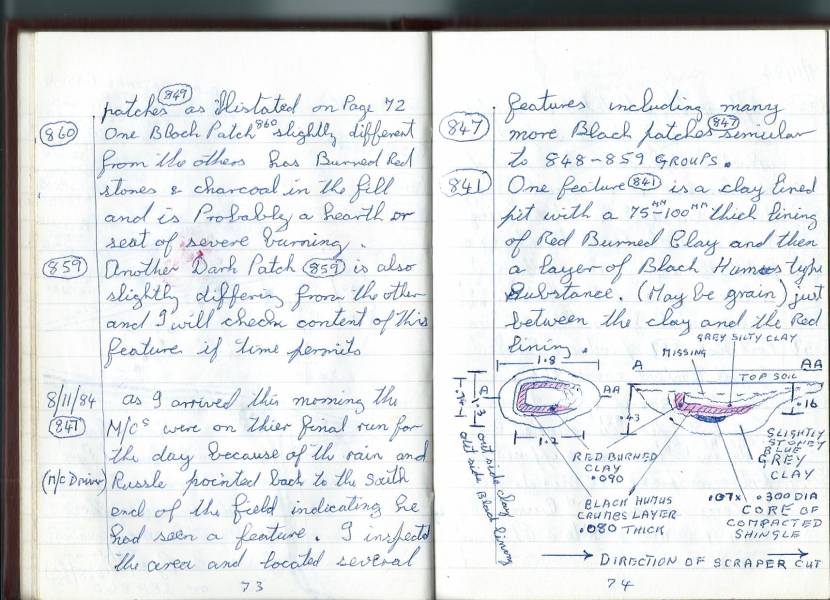 patches (849) as illistated on Page 72
(860) One Black Patch 860 slightly different
from the others has Burned Red
stones & charcoal in the fill
and is Probably a hearth or
seat of severe burning.
(859) Another Dark Patch (859) is also
slightly differing from the other
and I will check content of this
feature if time permits
8/11/84 as I arrived this morning the
(841) M/Cs were on thier final run for
the day because of the rain and
(M/C Driver) Russle pointed back to the South
end of the field indicating he
had seen a feature. I inspectd
the area and located several
73
features including many
(847) more Black patches (847) simular
to 848-859 GROUPS.
(841) One feature (841) is a clay lined
pit with a 75MM-100MM thick lining
of Red Burned Clay and then
a layer of Black Humus type
substance. (May be grain) just
between the clay and the Red
lining.
GREY SILTY CLAY
MISSING
1.8
A AA
TOP SOIL
A AA
.16
1.3
.43
1.2
out side clay
out side Black lining
RED BURNED
CLAY
.090
BLACK HUMUS
CRUMBS LAYER
.080 THICK
SLIGHTLY
STONEY
BLUE
GREY
CLAY
.07x .300 DIA
CORE OF
COMPACTED
SHINGLE
DIRECTION OF SCRAPER CUT
74